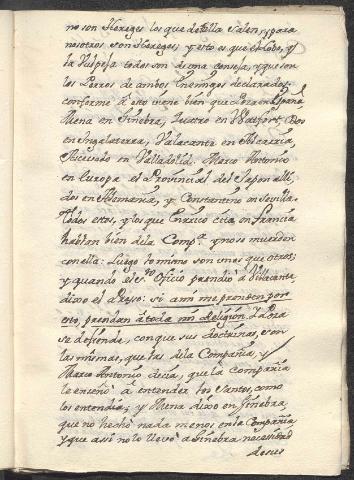 no son Hereges los que de ella salen, para
nosotros son Hereges; y esto es que el Lobo, y
la Vulpeja todos son de una conseja, y que son
los Perros de ambos Enemigos declarados:
conforme à esto viene bien que
Mena en Ginebra, quatro en Dos
en Inglaterra, Valacante en
Acevedo en Valladolid. Marco Antonio
en Europa el Provincial del Japon all
dos en Alemania, y Constantino en Sevilla.
todos estos, y los que Enrico cita en Francia
hablan bien dela Comp.ª y no se muerden
con ella: Luego lo mismo son unos que otros;
y quando el S.to Oficio prendiò à Villacante
dixo el Preso: si ami me prenden por
esto, prendan à toda mi Religion.
se defiende, con que sus doctrinas, son
las mismas, que las dela Compañia, y
Marco Antonio decia, que la Compañia
le enseñò à entender los Santos, como
los entendia; y Mena dixo en Ginebra,
que no hechò nada menos en la Compañia
y que assi no lo llevò à Ginebra necessidad
de sus